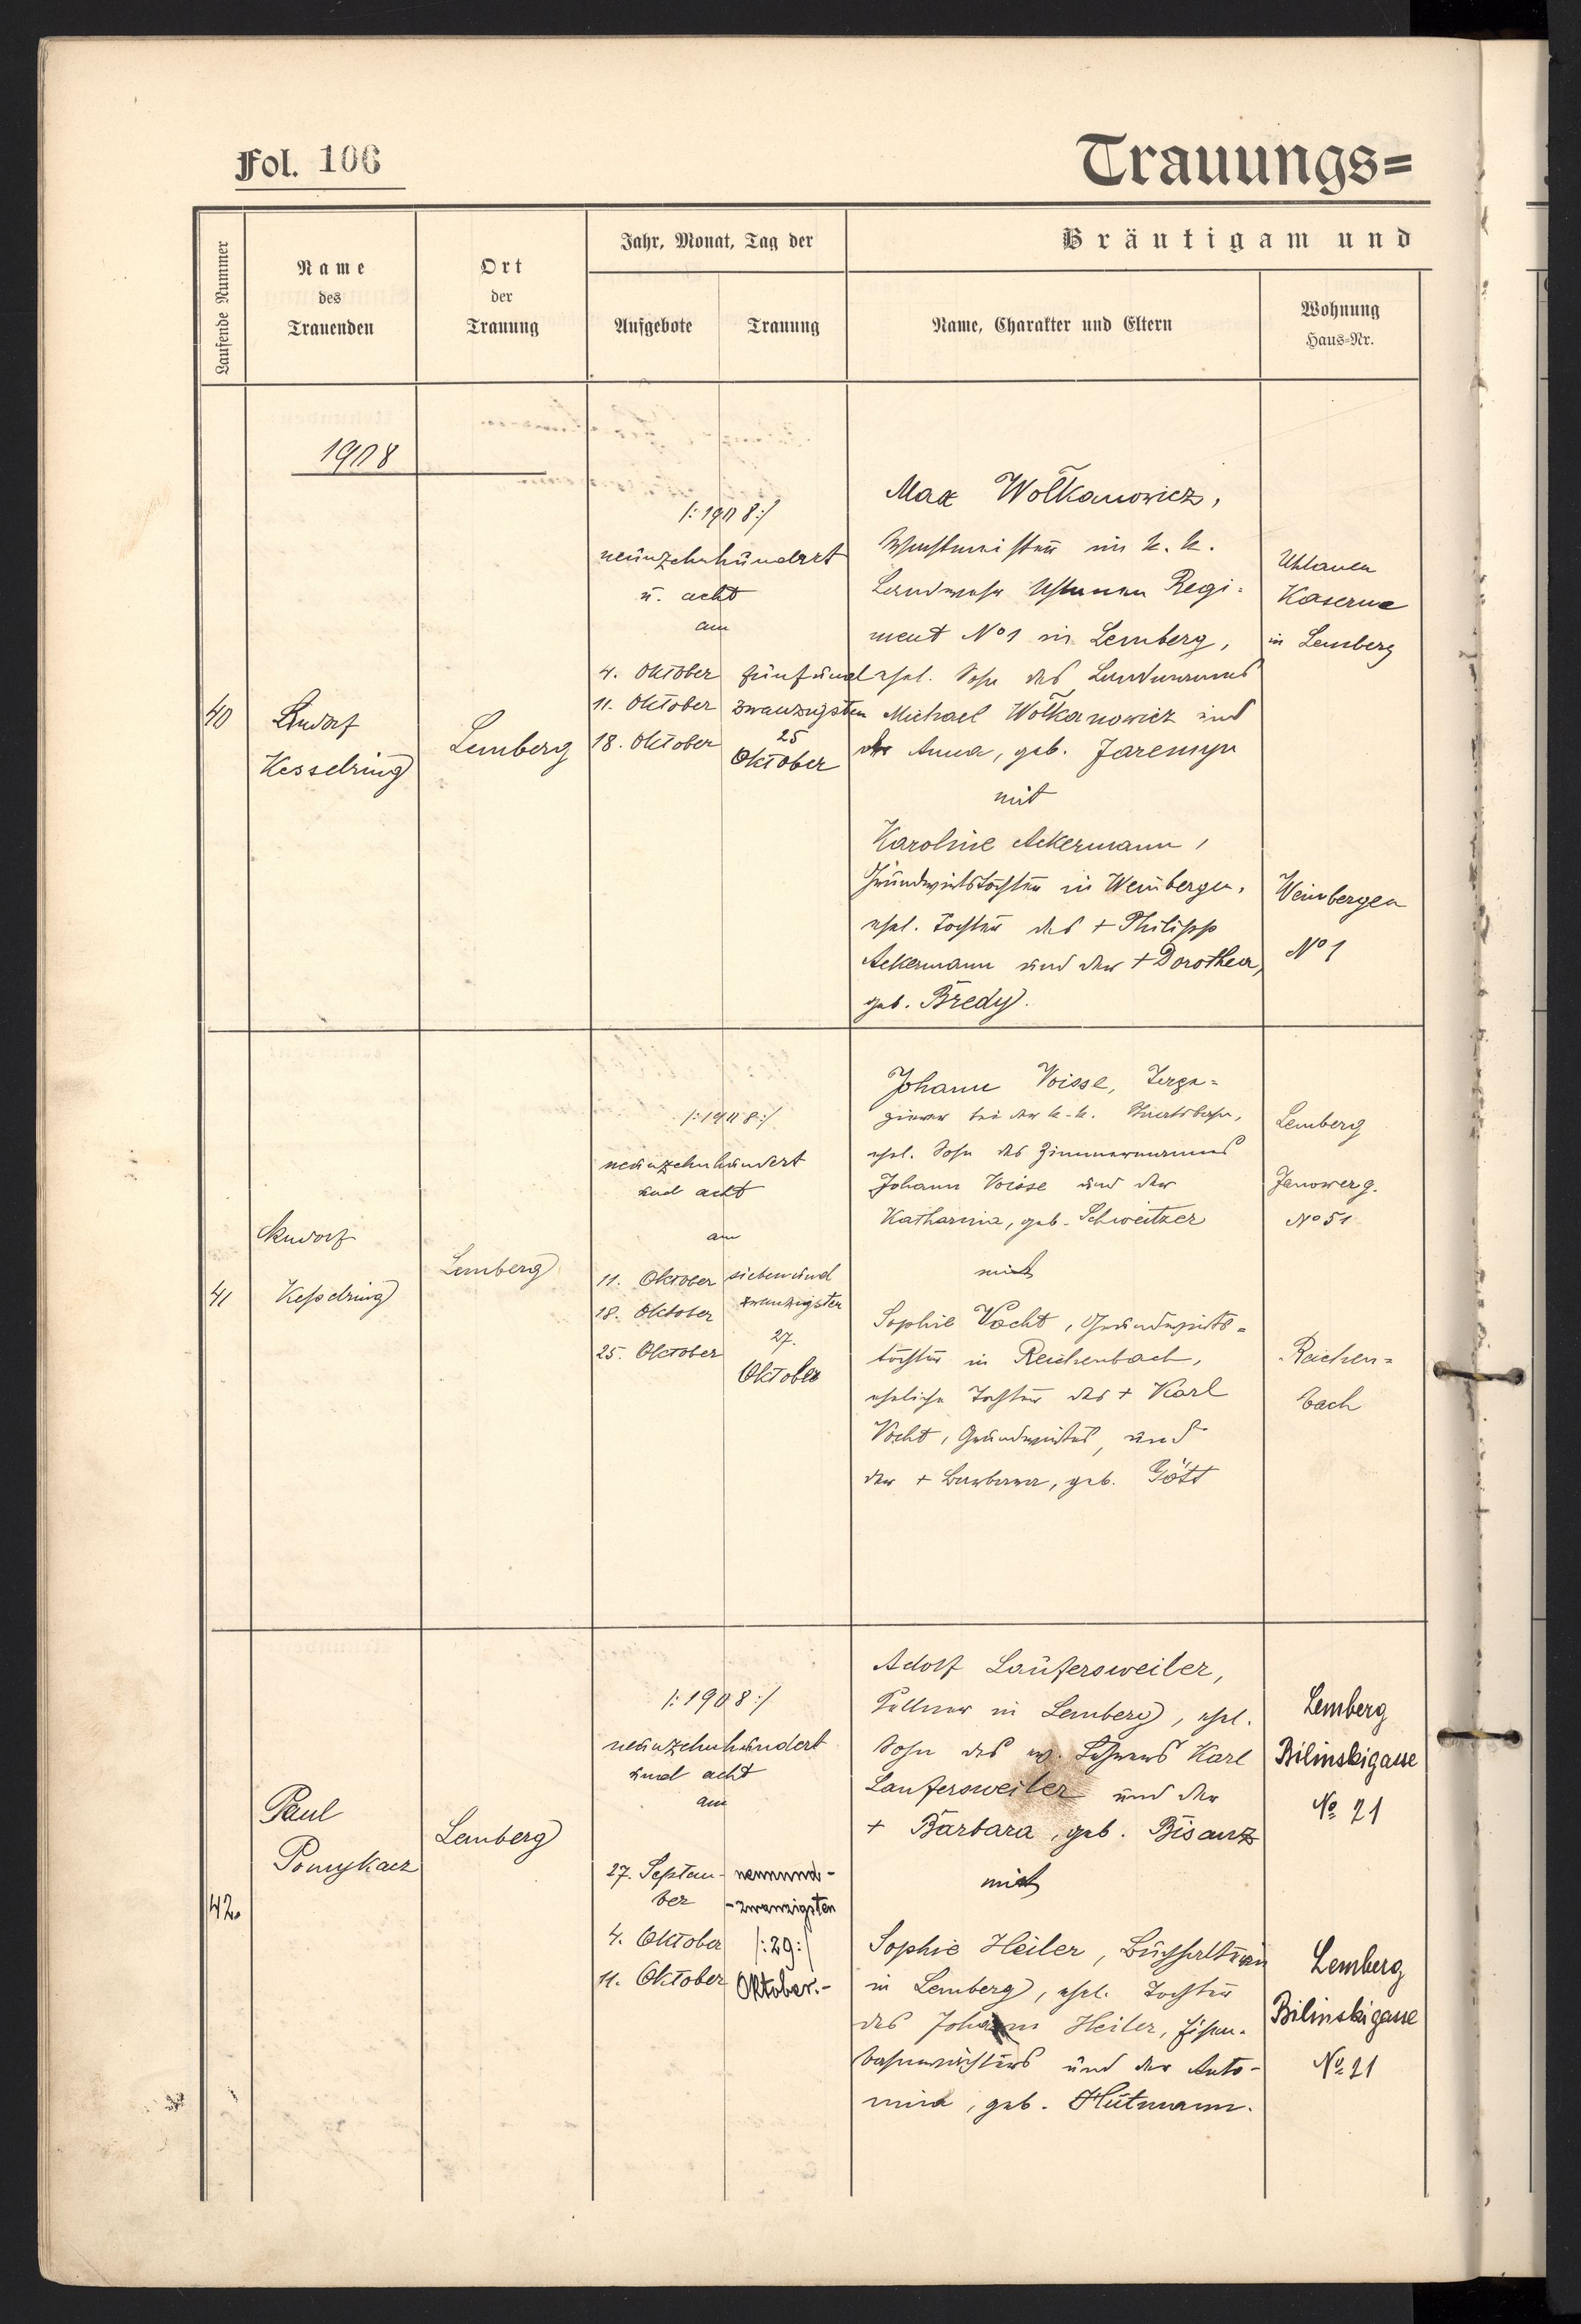 Fol. 106
Trauungs=
Laufende Nummer
Name
des
Trauenden
Ort
der
Trauung
Jahr, Monat, Tag der
Aufgebote
Trauung
Bräutigam und
Name, Charakter und Eltern
Wohnung
Haus=Nr.
1908
40
Kesselring
Lemberg
/:1908:/
neunzehnhundert
u. acht
am
4. Oktober
11. Oktober
18. Oktober
fünfund
zwanzigsten
25
Oktober
Max Wołkanowicz,
Wachtmeister im k. k.
Landwehr Uhlanen Regi=
ment No 1 in Lemberg,
ehel. Sohn des Landmanns
Michael Wołkanowicz und
der Anna, geb. Jaremyn
mit
Karoline Ackermann,
Grundwirtstochter in Weinbergen,
ehel. Tochter des + Philipp
Ackermann und der + Dorothea,
geb. Bredy.
Uhlanen
Kaserne
in Lemberg
Weinbergen
No 1
41
Keßelring
Lemberg
/:1908:/
neunzehnhundert
und acht
am
11. Oktober
18. Oktober
25. Oktober
siebenund
zwanzigsten
27.
Oktober
Johann Voisse,
bei der k.-k. Staatsbahn,
ehel. Sohn des Zimmermanns
Johann Voisse und der
Katharina, geb. Schweitzer
mit
Sophie Vocht, Grundwirts=
tochter in Reichenbach,
eheliche Tochter des + Karl
Vocht, Grundwirtes, und
der + Barbara, geb. Gött
Lemberg
Janowerg.
No 51
Reichen=
bach
42.
Paul
Pomykacz
Lemberg
/:1908:/
neunzehnhundert
und acht
am
27. Septem-
ber
4. Oktober
11. Oktober
neunund-
-zwanzigsten
/:29:/
Oktober.-
Adolf Laufersweiler,
Kellner in Lemberg, ehel.
Sohn des Lehrers Karl
Laufersweiler und der
+ Barbara, geb. Bisanz
mit
Sophie Heiler, Buchhalterin
in Lemberg, ehel. Tochter
des Johann Heiler, Eisen-
bahnwächters und der Anto-
nina, geb. Hütmann.
Lemberg
Bilinskigasse
No 21
Lemberg
Bilinskigasse
No 21